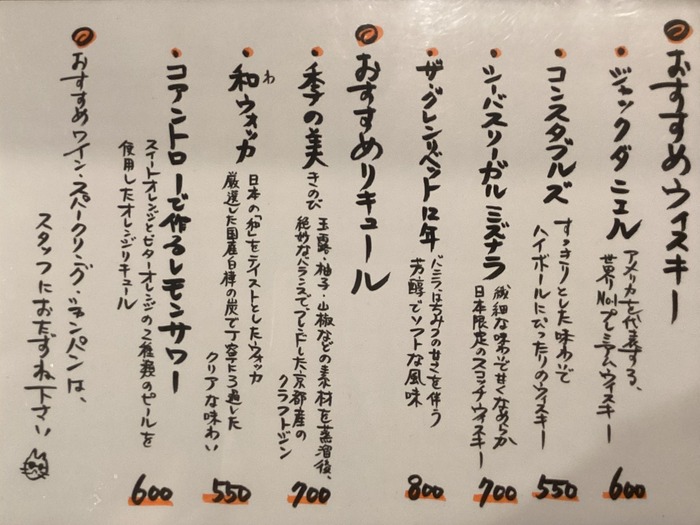 おすすめウィスキー
ジャックダニエル
アメリカを代表する、
世界No.1プレミアムウィスキー
600
コンスタブルズ
すっきりとした味わいで
ハイボールにぴったりのウィスキー
550
シーバスリーガル ミズナラ
繊細な味わいで甘くなめらか
日本限定のスコッチウィスキー
700
ザ・グレンリベット12年
バニラ、はちみつの甘さを伴う
芳醇でソフトな風味
800
おすすめリキュール
季の美 きのび
玉露・柚子・山椒などの素材を蒸溜後、
絶妙なバランスでブレンドした京都産の
クラフトジン
700
和ウォッカ
わ
日本の「和」をテイストとしたウォッカ
厳選した国産白樺の炭で丁寧にろ過した
クリアな味わい
550
コアントローで作るレモンサワー
スイートオレンジとビターオレンジの2種類のピールを
使用したオレンジリキュール
600
おすすめワイン・スパークリング・シャンパンは、
スタッフにおたずね下さい